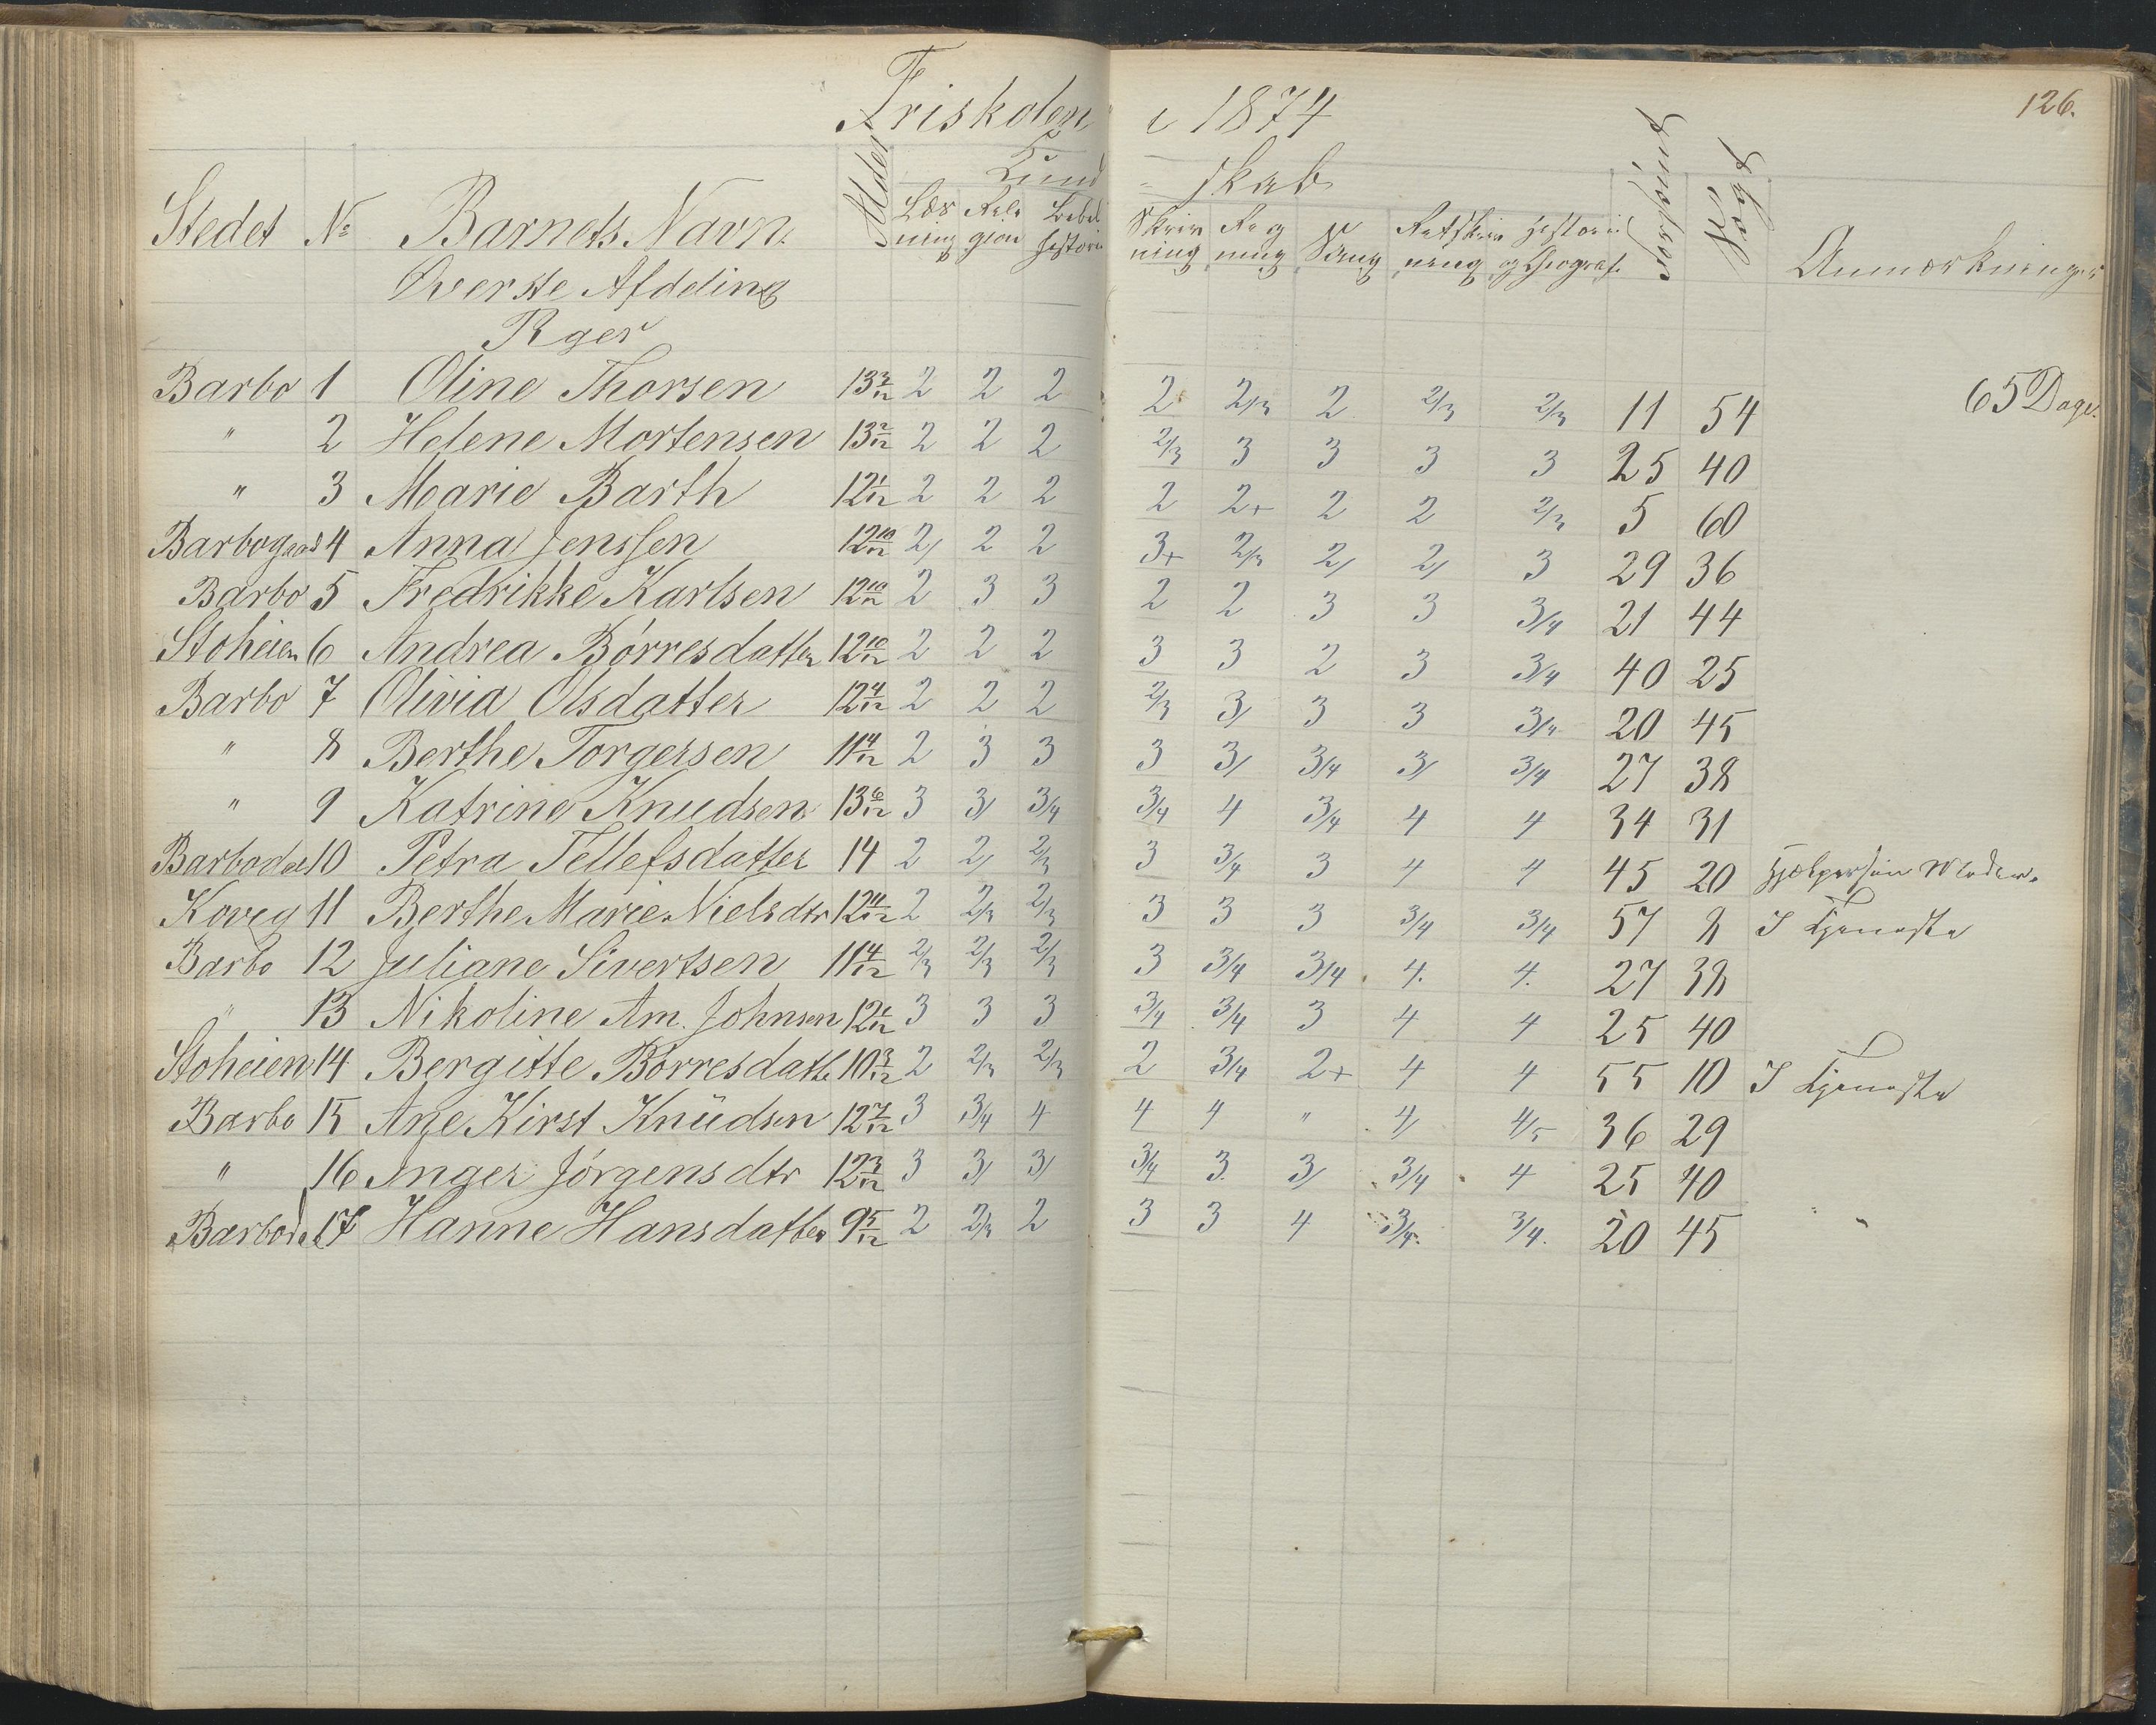 126.
Friskolen i 1874
Stedet № Barnets Navn. Alder Kundskab Forsømt Søgt Anmærkninger
Læsning Religion Bibelhistorie Skrivning Regning Sang Retskrivning Historie og Geograf.
Øverste Afdeling
Piger
Barbo 1 Oline Thorsen 13 3/12 2 2 2 2 2/3 2 2/3 2/3 11 54 65 Dage.
" 2 Helene Mortensen 13 2/12 2 2 2 2/3 3 3 3 3 25 40
" 3 Marie Barth 12 1/12 2 2 2 2 2+ 2 2 2/3 5 60
Barbogaard 4 Anna Jenssen 12 10/12 2/ 2 2 3+ 2/3 2/ 2/ 3 29 36
Barbo 5 Fredrikke Karlsen 12 10/12 2 3 3 2 2 3 3 3/4 21 44
Stoheien 6 Andrea Børresdatter 12 10/12 2 2 2 3 3 2 3 3/4 40 25
Barbo 7 Olivia Olsdatter 12 4/12 2 2 2 2/3 3/ 3 3 3/4 20 45
" 8 Berthe Torgersen 11 4/12 2 3 3 3 3/ 3/4 3/ 3/4 27 38
" 9 Katrine Knudsen 13 6/12 3 3/ 3/4 3/4 4 3/4 4 4 34 31
Barbodal 10 Petra Tellefsdatter 14 2 2/ 2/3 3 3/4 3 4 4 45 20 Hjælper sin Moder.
Koveg 11 Berthe Marie Nielsdtr 12 11/12 2 2/3 2/3 3 3 3 3/4 3/4 57 8 I Tjeneste
Barbo 12 Juliane Sivertsen 11 4/12 2/3 2/3 2/3 3 3/4 3/4 4. 4. 27 38
" 13 Nikoline Am. Johnsen 12 /12 3 3 3 3/4 3/4 3 4 4 25 40
Stoheien 14 Bergitte Børresdatte 10 3/12 2 2/3 2/3 2 3/4 2+ 4 4 55 10 I Tjeneste
Barbo 15 Ane Kirst Knüdsen 12 7/12 3 3/4 4 4 4 " 4/ 4/5 36 29
" 16 Inger Jørgensdtr 12 3/12 3 3/ 3/ 3/4 3 3/ 3/4 4 25 40
Barbodal 17 Hanne Hansdatter 9 5/12 2 2/3 2 3 3 4 3/4. 3/4. 20 45